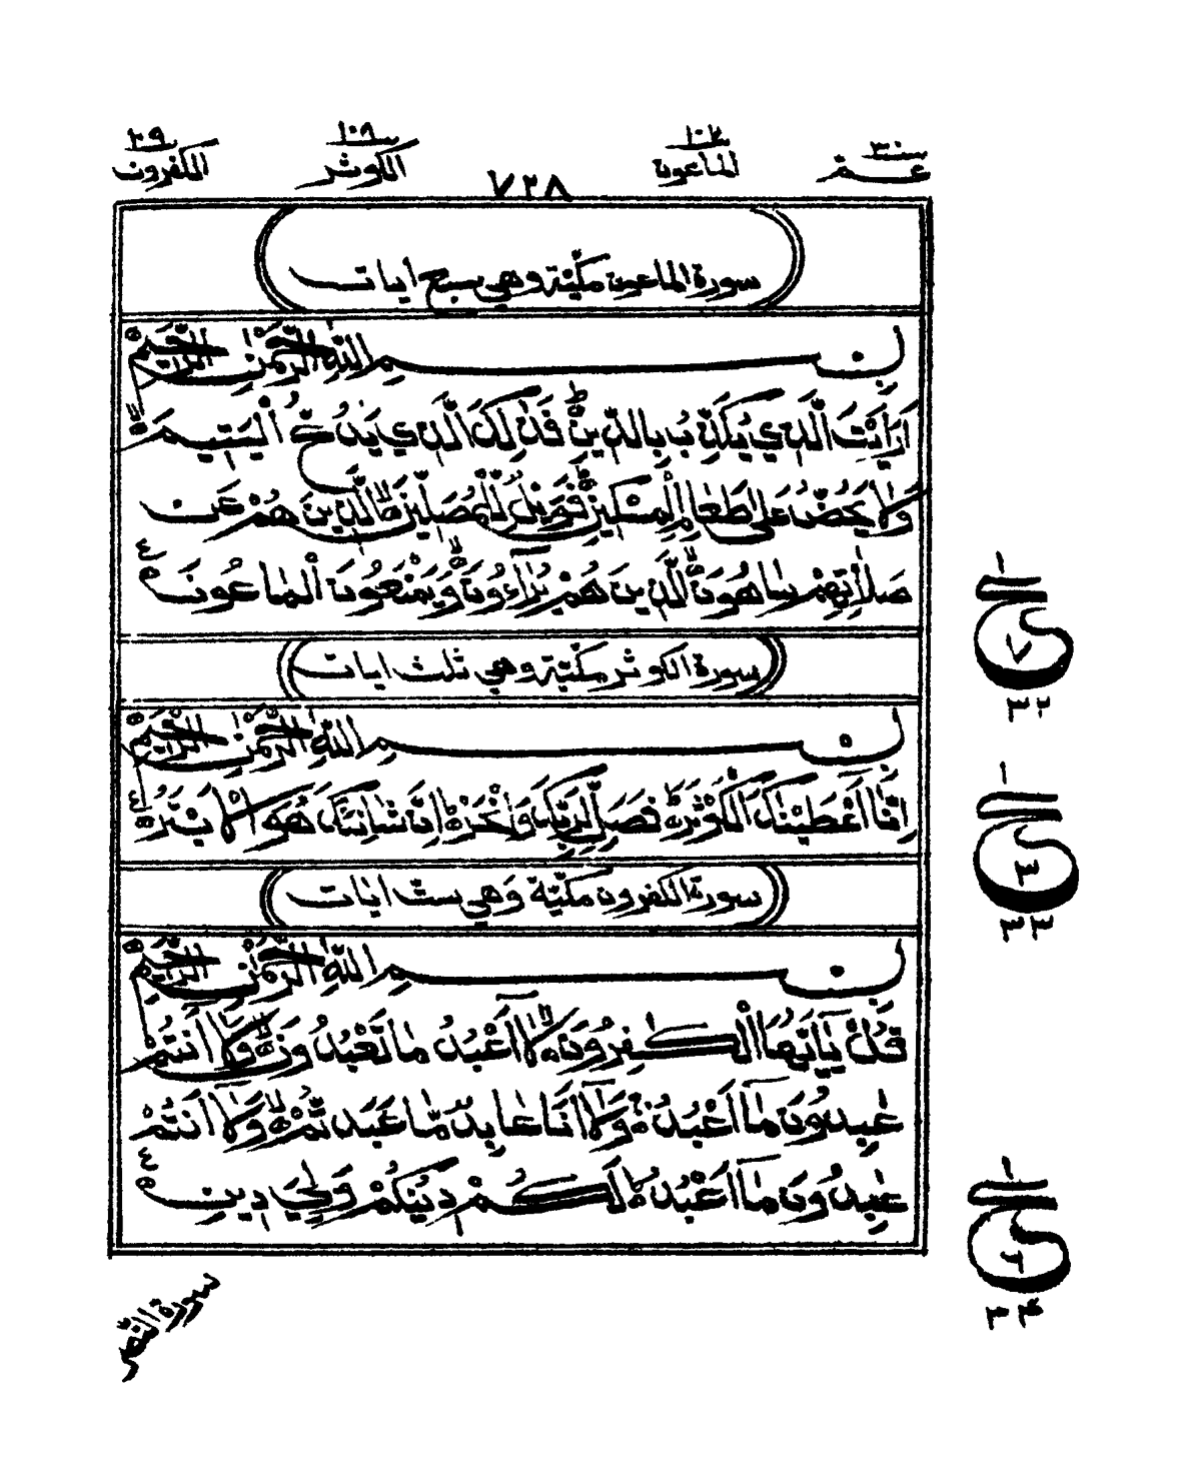 عمّ ٣٠ الماعون ١٠٧ ٧٢٨ الكوثر ١٠٨ الكفرون ١٠٩
سورة الماعون مكيّة وهي سبع اٰيات
بِسْمِ اللّٰهِ الرَّحْمٰنِ الرَّحِيْمِ
اَرَاَيْتَ الَّذِيْ يُكَذِّبُ بِالدِّيْنِ فَذٰلِكَ الَّذِيْ يَدُعُّ الْيَتِيْمَ
وَلَا يَحُضُّ عَلٰى طَعَامِ الْمِسْكِيْنِ فَوَيْلٌ لِّلْمُصَلِّيْنَ الَّذِيْنَ هُمْ عَنْ
صَلَاتِهِمْ سَاهُوْنَ الَّذِيْنَ هُمْ يُرَآءُوْنَ وَيَمْنَعُوْنَ الْمَاعُوْنَ
ع
٧
٣٢
سورة الكوثر مكيّة وهي ثلث اٰيات
بِسْمِ اللّٰهِ الرَّحْمٰنِ الرَّحِيْمِ
اِنَّا اَعْطَيْنٰكَ الْكَوْثَرَ فَصَلِّ لِرَبِّكَ وَانْحَرْ اِنَّ شَانِئَكَ هُوَ الْاَبْتَرُ
ع
٣
٣٣
سورة الكفرون مكيّة وَهي ستّ اٰيات
بِسْمِ اللّٰهِ الرَّحْمٰنِ الرَّحِيْمِ
قُلْ يٰٓاَيُّهَا الْكٰفِرُوْنَ لَآ اَعْبُدُ مَا تَعْبُدُوْنَ وَلَآ اَنْتُمْ
عٰبِدُوْنَ مَآ اَعْبُدُ وَلَآ اَنَا عَابِدٌ مَّا عَبَدْتُّمْ وَلَآ اَنْتُمْ
عٰبِدُوْنَ مَآ اَعْبُدُ لَكُمْ دِيْنُكُمْ وَلِيَ دِيْنِ
ع
٦
٣٤
سورة النّصر